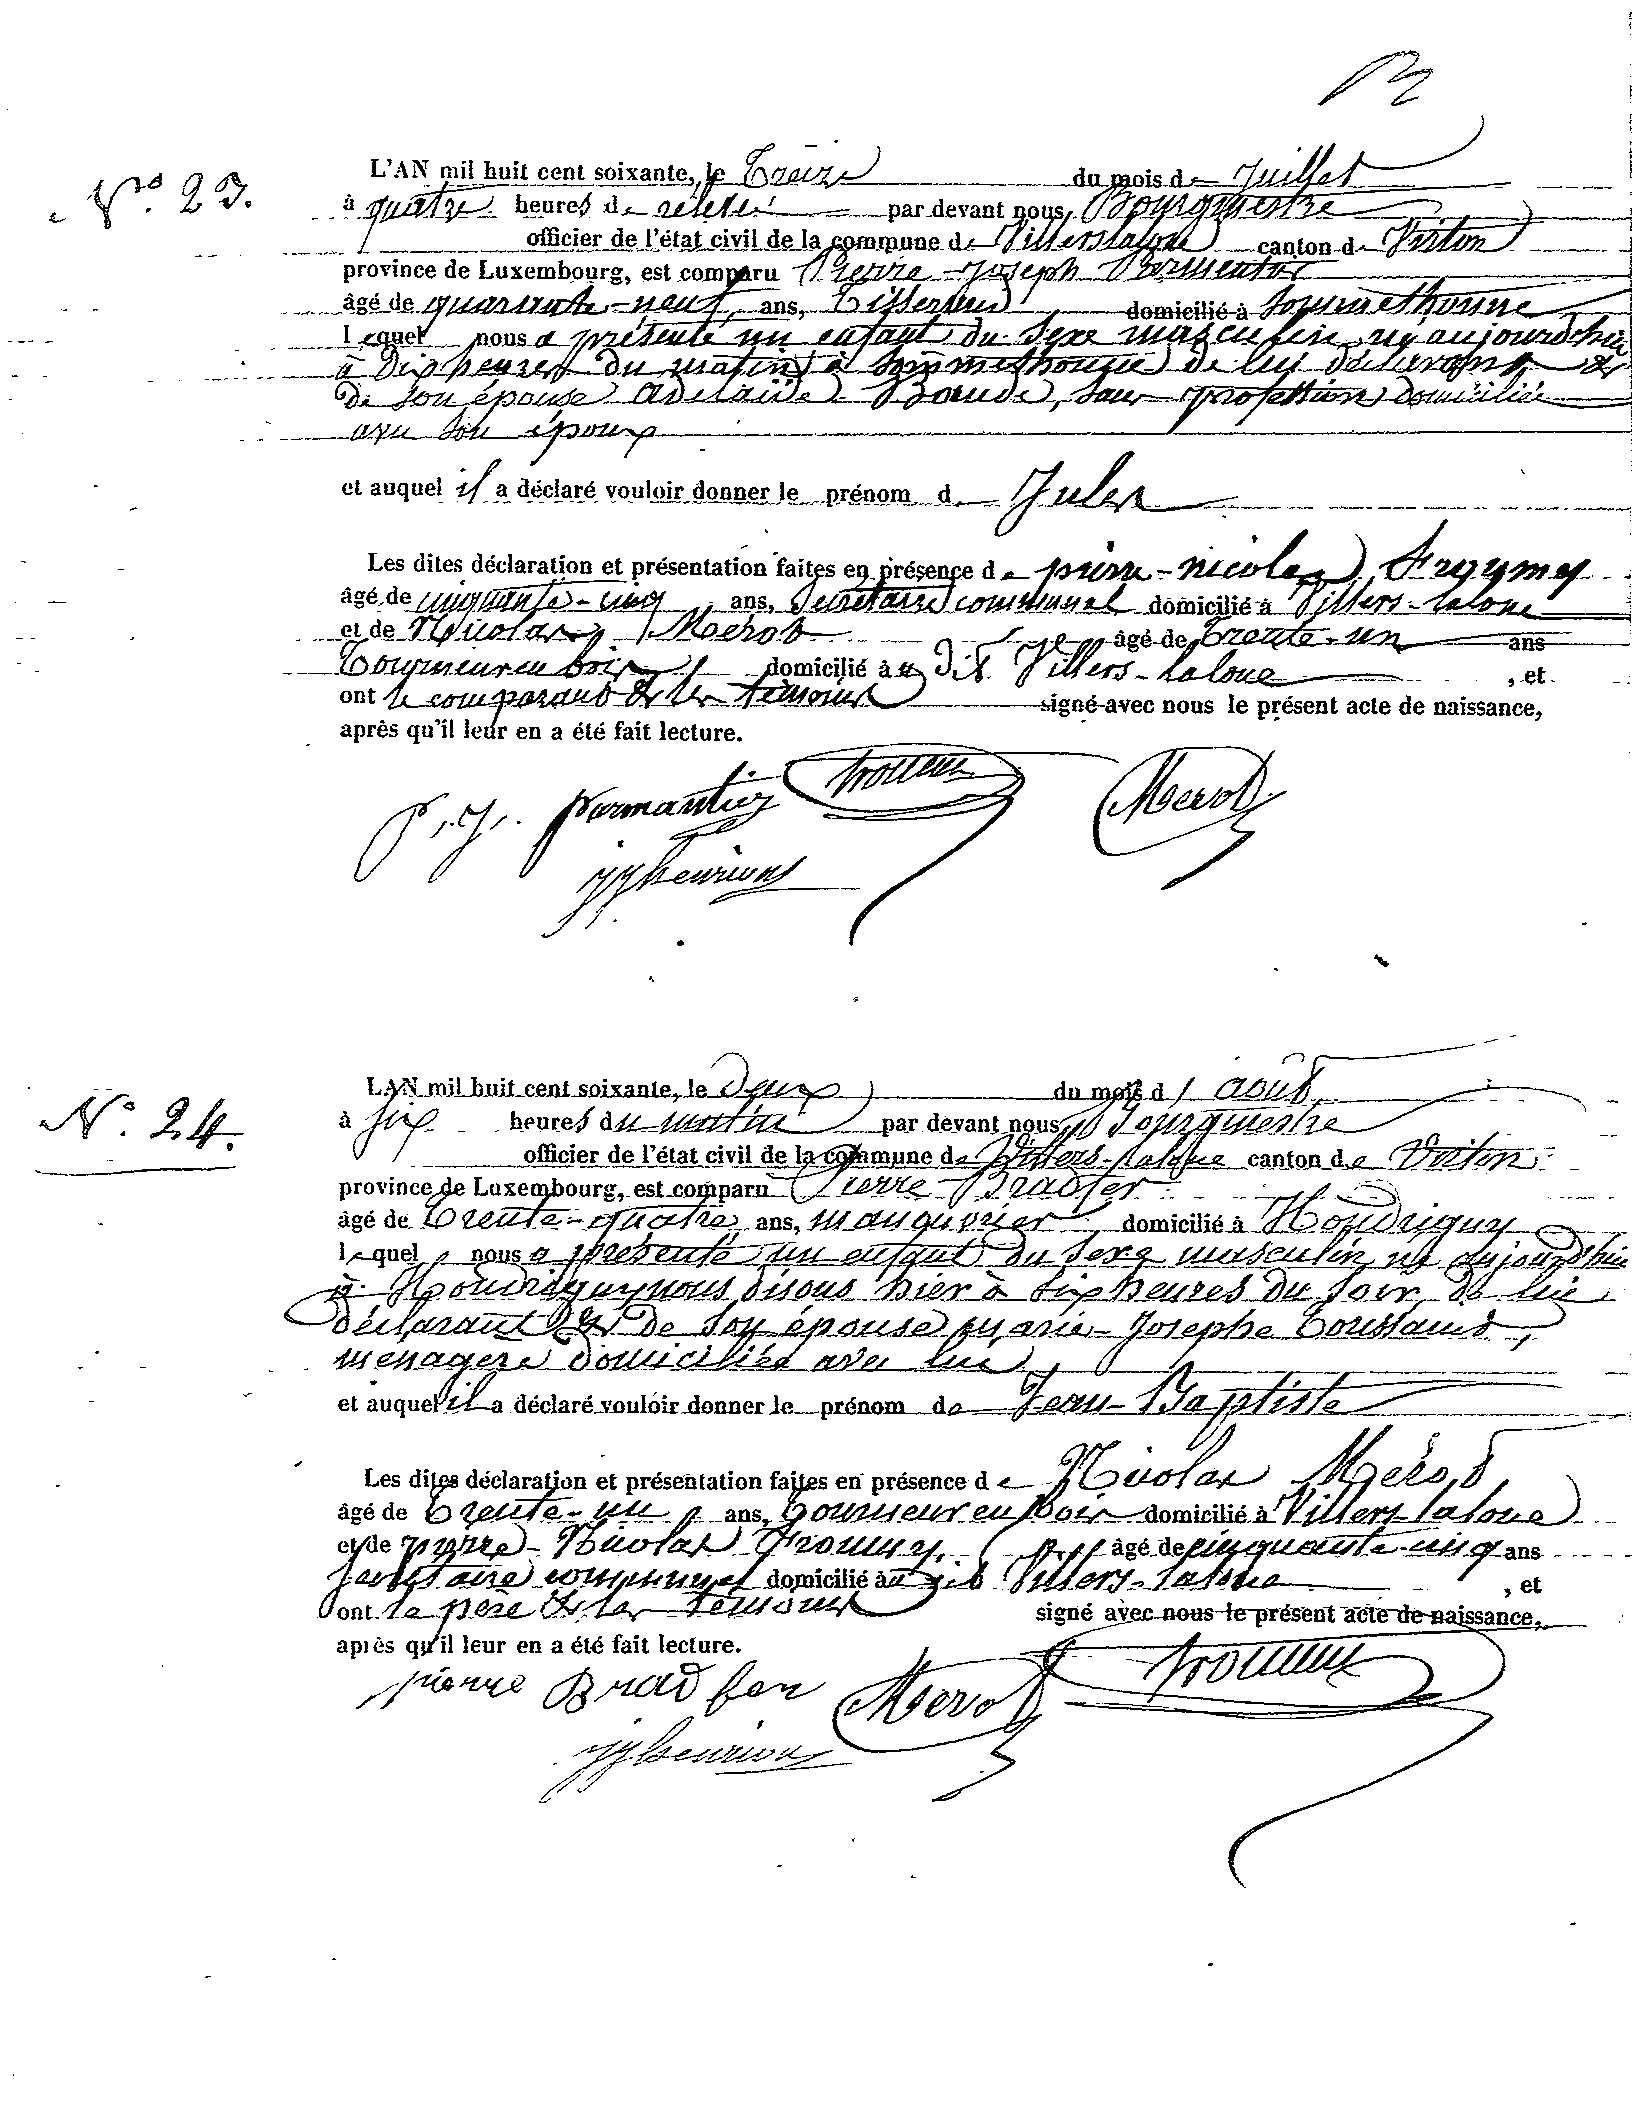 N.° 23.
L'AN mil huit cent soixante, le Treize du mois de Juillet
à quatre heures de par devant nous, Bourgmestre
officier de l'état civil de la commune de Villerslaloue canton de Virton
province de Luxembourg, est comparu Pierre-Joseph
âgé de quarante-neuf ans, Tisserand domicilié à Sommethonne
lequel nous a présenté un enfant du sexe masculin, né aujourd'hui
à Dix heures du matin à Sommethonne de lui déclarant &
de son épouse Adelaïde Baude, sans profession domiciliée
avec son époux
et auquel il a déclaré vouloir donner le prénom de Jules
Les dites déclaration et présentation faites en présence de pierre-nicolas
âgé de cinquante-cinq ans, Secrétaire communal domicilié à Villers-laloue
et de Nicolas Mérot âgé de trente-un ans
Tourneur en bois domicilié au dit Villers-laloue , et
ont le comparant & les témoins signé avec nous le présent acte de naissance,
après qu'il leur en a été fait lecture.
p. j. parmantier Mérot
jjhenrion
N.° 24.
L'AN mil huit cent soixante, le Deux du mois d' août
à six heures du matin par devant nous, Bourgmestre
officier de l'état civil de la commune de Villers-laloue canton de Virton
province de Luxembourg, est comparu Pierre Bradfer
âgé de Trente-quatre ans, manouvrier domicilié à Houdrigny
lequel nous a présenté un enfant du sexe masculin, né aujourd'hui
à Houdrigny nous disons hier à six heures du soir, de lui
déclarant & de son épouse marie-Josephe Toussaint,
ménagère domiciliée avec lui
et auquel il a déclaré vouloir donner le prénom de Jean-Baptiste
Les dites déclaration et présentation faites en présence de Nicolas Mérot
âgé de Trente-un ans, Tourneur en bois domicilié à Villers-laloue
et de pierre-Nicolas âgé de cinquante-cinq ans
secrétaire communal domicilié au dit Villers-laloue , et
ont le père & les témoins signé avec nous le présent acte de naissance,
après qu'il leur en a été fait lecture.
pierre Bradfer Mérot
jjhenrion